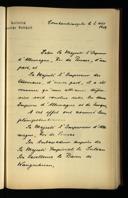 Constantinople le 2 août
1914
Entre Sa Majesté l'Empereur
d'Allemagne, Roi de Prusse, d'une
part, et
Sa Majesté l'Empereur des
Ottomans, d'autre part, il a été
Empire d'Allemagne et de Turquie
A cet effet ont nommé leur
plénipotentiaires:
Sa Majesté l'Empereur d'Alle-
magne, Roi de Prusse
Son Ambassadeur auprès de
Sa Majesté Impériale le Sultan
Son Excellence le Baron de
Wangenheim